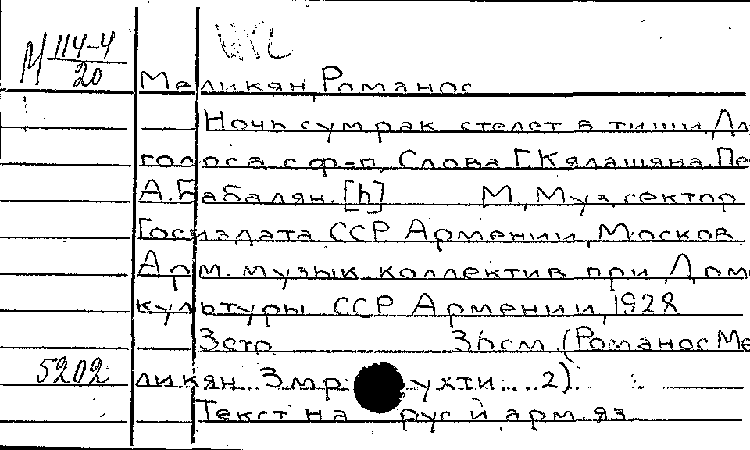 М 114-4
20
Меликян, Романос
Ночь сумрак стелет в тиши. Дл
голоса с ф-п. Слова Г. Кялашяна. Пе
А. Бабалян. [h] М., Муз. сектор
Госиздата ССР Армении, Москов
Арм. музык. коллектив при Дом
культуры ССР Армении, 1928
3 стр 36 см. (Романос Ме
5202 ликян.. Змр ухти... 2).
Текст на рус и арм. яз